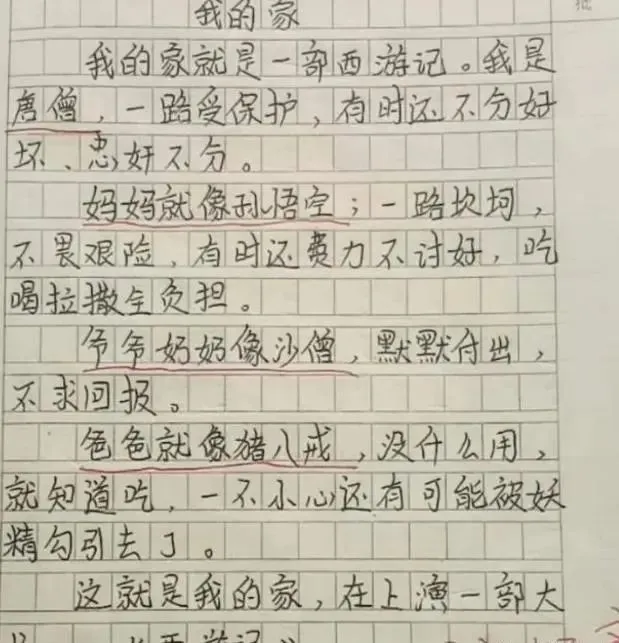 我的家
我的家就是一部西游记。我是
唐僧，一路受保护，有时还不分好
坏、忠奸不分。
妈妈就像孙悟空；一路坎坷，
不畏艰险，有时还费力不讨好，吃
喝拉撒全负担。
爷爷奶奶像沙僧，默默付出，
不求回报。
爸爸就像猪八戒，没什么用，
就知道吃，一不小心还有可能被妖
精勾引去了。
这就是我的家，在上演一部大
《西游记》